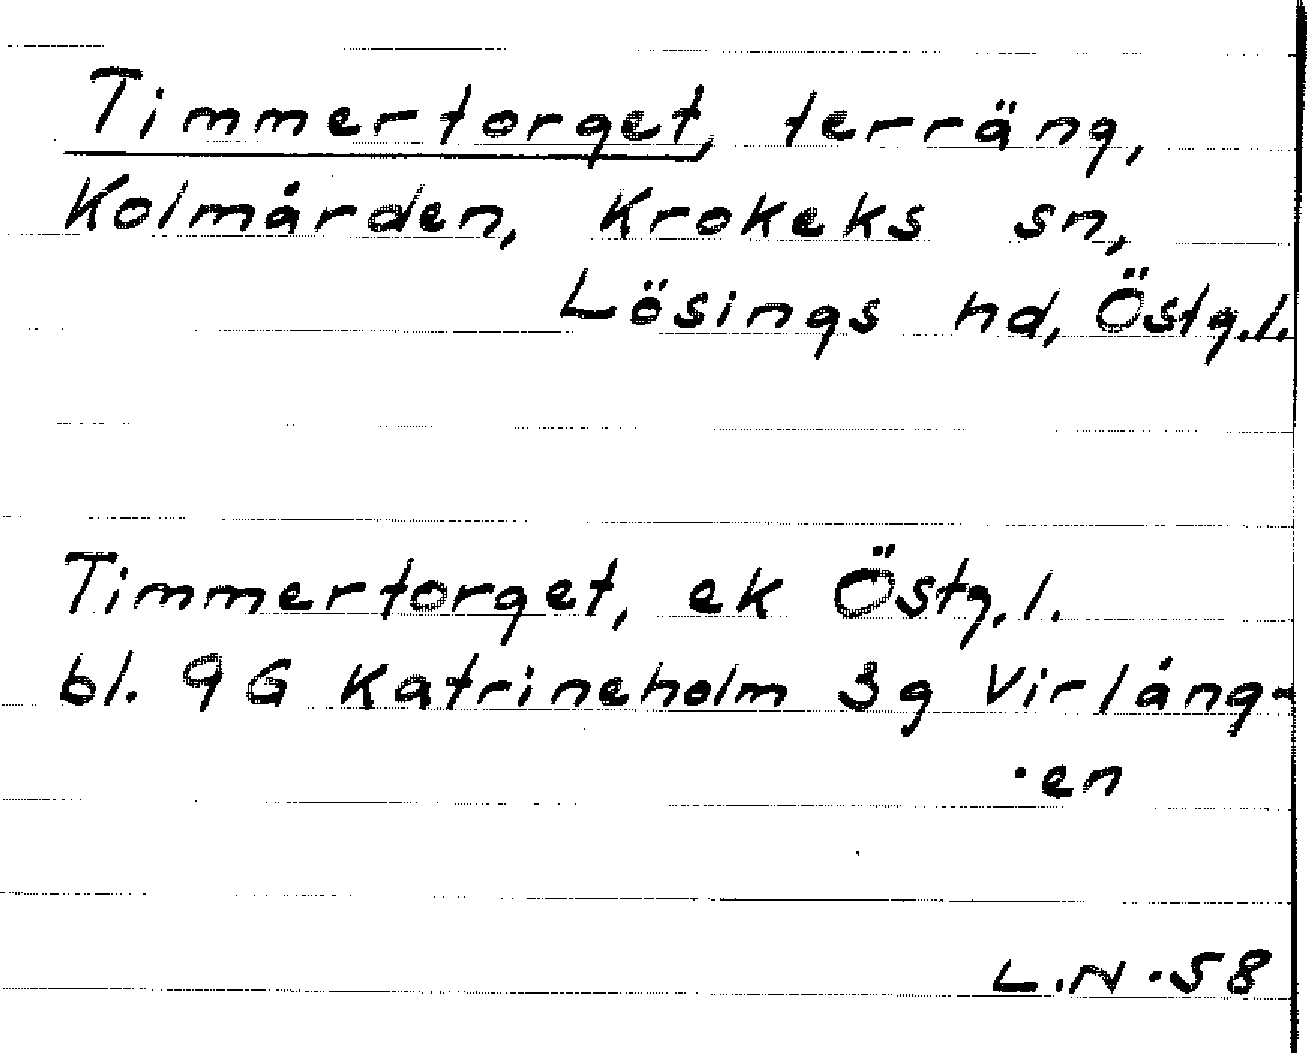 Timmertorget, terräng,
Kolmården, Krokeks sn,
Lösings hd, Östg.l.
Timmertorget, ek Östg.l.
bl. 9G Katrineholm 3g Virlång-
en
L.N. 58